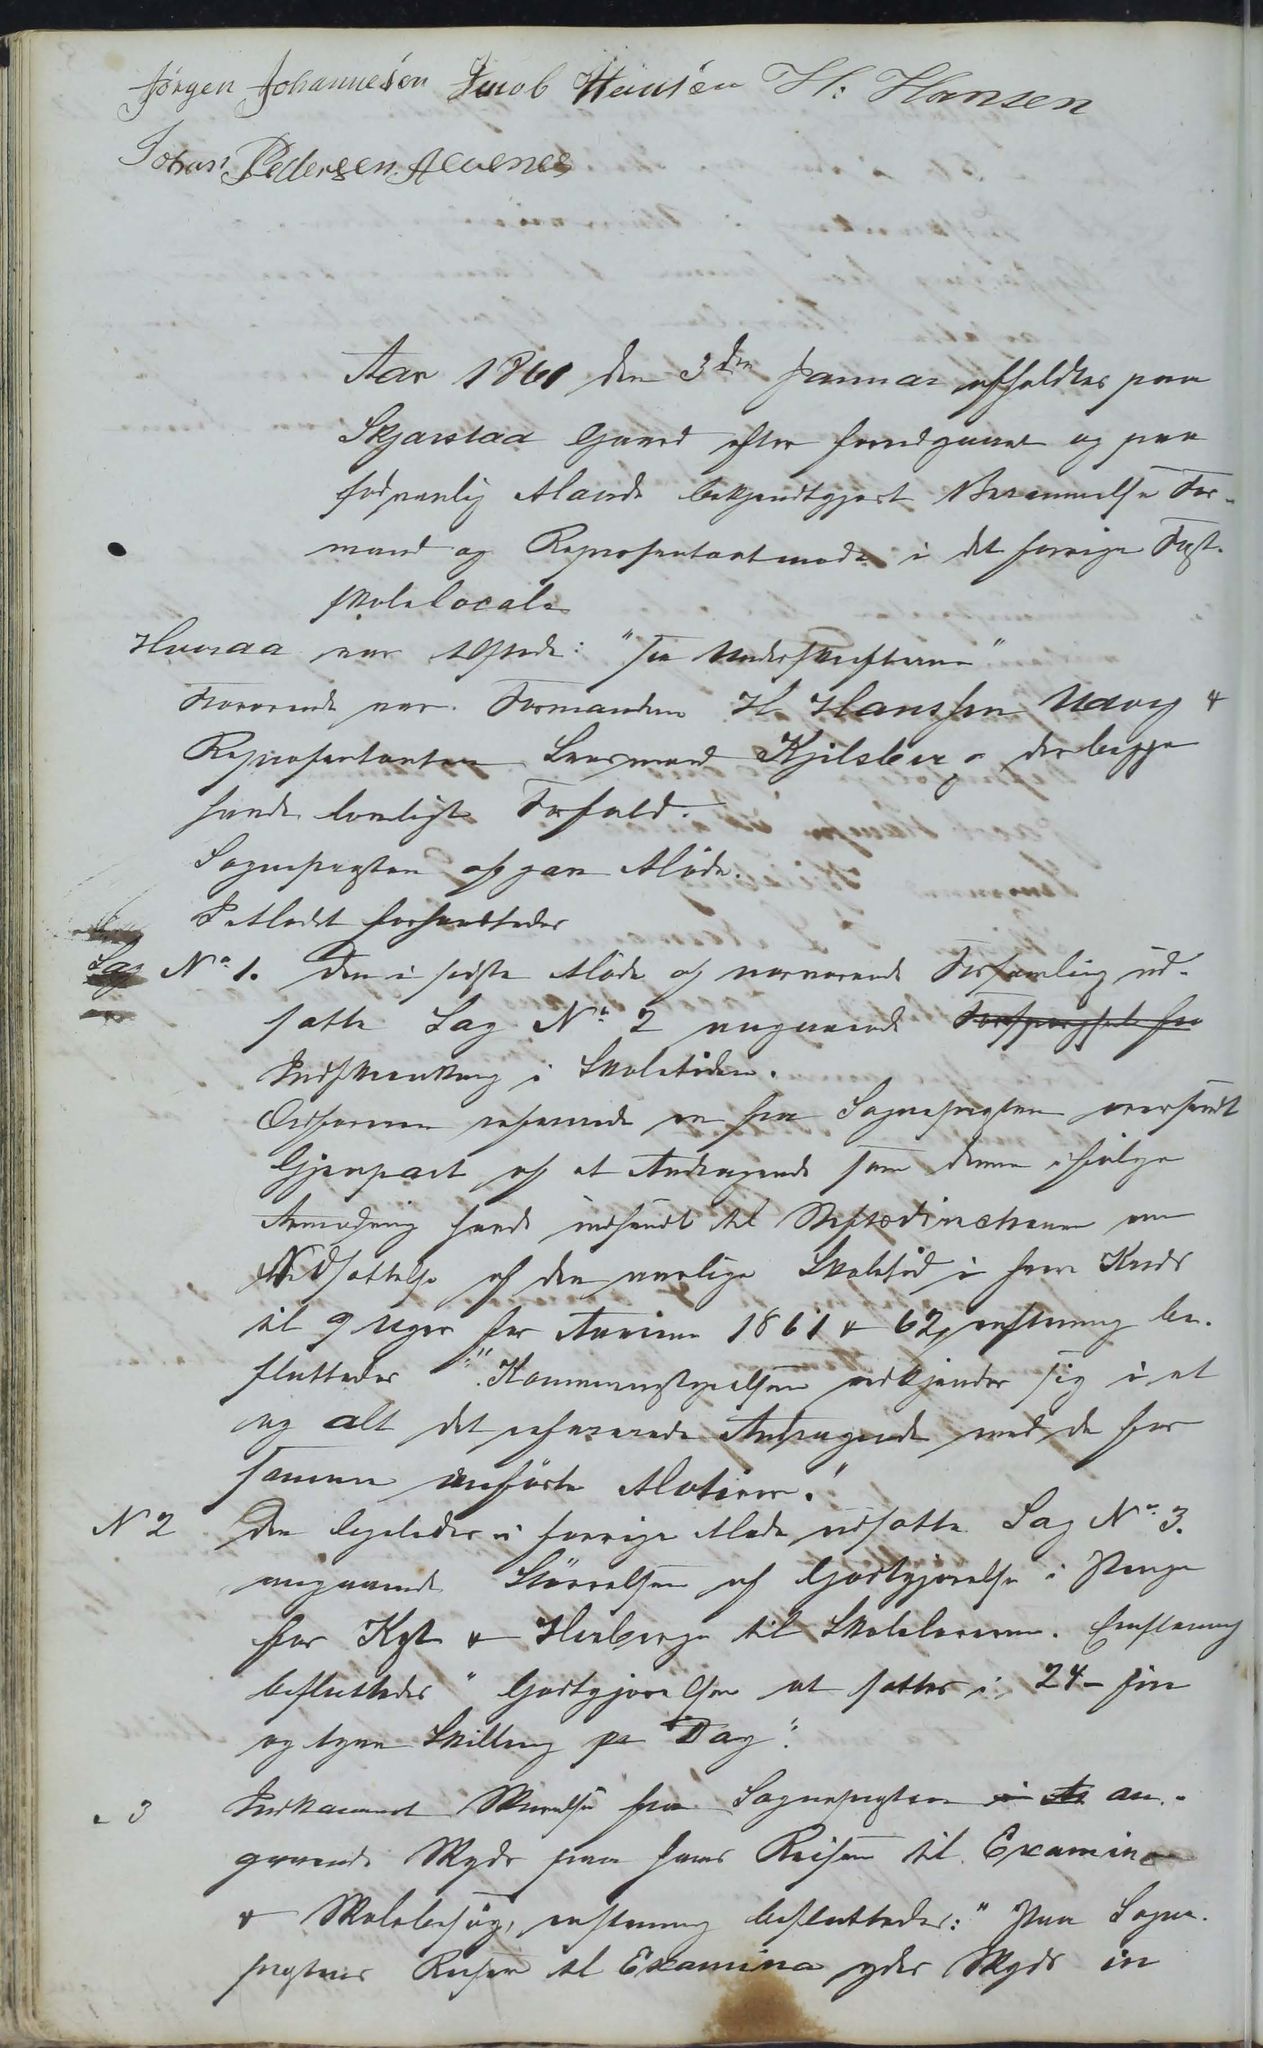 Jörgen Johannesen Jacob Hansen H: Hansen
Johan Pedersen Alvenes
Aar 1861 den 3den Januar afholdtes paa
Skjærstad Gaard efter foregaaet og paa
sædvanlig Maade bekjendtgjort Berammelse For-
mand og Repræsentantmøde i det forrige Fast-
skolelocale
Hvorda var tilstede: "see Underskrifterne"
Fraværende var. Formanden H Hanssen Udvig &
Repræsentanten Lensmand Kjelsberg - der begge
havde lovligt Forfald.
Sognepresten afgav Møde.
I Mødet forhandledes
Sag No 1. Den i sidste Møde af nærværende Forsamling ud-
satte Sag No 2 angaaende Forespørgsel fra
Indskrænkning i Skoletiden.
Ordføreren refererede en fra Sognepresten oversendt
Gjenpart af et Andragende som denne ifølge
Anmodning havde indsendt til Stiftsdirectionen om
Nedsættelse af den aarlige Skoletid i hver Kreds
til 9 Uger for Aarene 1861 & 62, hvorom be-
sluttedes: "Kommunestyrelsen vedkjender sig i et
og alt det refererede Andragende med de for
samme anførte Motiver."
N 2 Den ligeledes i forrige Møde udsatte Sag No 3.
angaaende Størrelsen af Godtgjørelse i Penge
for Kost & Herberge til Skolelæreren. Eenstemmig
besluttedes "Godtgjørelsen at sættes i 24 - fire
og tyve Skilling pr Dag".
" 3 Indkommet Skrivelse fra Sognepresten i At an-
gaaende Skyds paa hans Reiser til Examina
& Skolebesøg, eenstemmig besluttedes: "Paa Sogne-
prestens Reiser til Examina ydes Skyds in